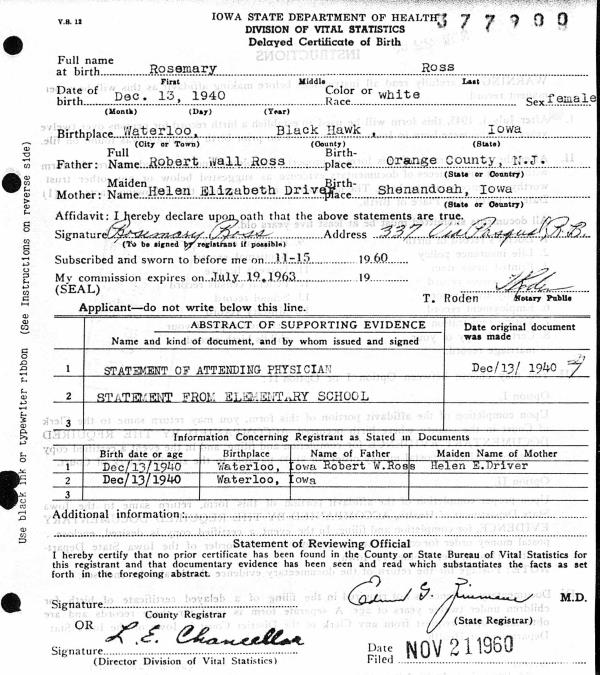 V.S. 12
IOWA STATE DEPARTMENT OF HEALTH 377900
DIVISION OF VITAL STATISTICS
Delayed Certificate of Birth
Full name
at birth Rosemary Ross
First Middle Last
Date of
birth Dec. 13, 1940 Color or
Race white Sex female
(Month) (Day) (Year)
Birthplace Waterloo, Black Hawk , Iowa
(City or Town) (County) (State)
Father: Full
Name Robert Wall Ross Birth-
place Orange County, N.J.
(State or Country)
Mother: Maiden
Name Helen Elizabeth Driver Birth-
place Shenandoah, Iowa
(State or Country)
Affidavit: I hereby declare upon oath that the above statements are true.
Signature Rosemary Ross Address 337 Via Pasqual, R.B.
(To be signed by registrant if possible)
Subscribed and sworn to before me on 11-15 19 60
My commission expires on July 19,1963 19 T Roden
(SEAL) T. Roden Notary Public
Applicant—do not write below this line.
ABSTRACT OF SUPPORTING EVIDENCE
Name and kind of document, and by whom issued and signed
Date original document
was made
1 STATEMENT OF ATTENDING PHYSICIAN Dec/13/ 1940
2 STATEMENT FROM ELEMENTARY SCHOOL
3
Information Concerning Registrant as Stated in Documents
Birth date or age Birthplace Name of Father Maiden Name of Mother
1 Dec/13/1940 Waterloo, Iowa Robert W.Ross Helen E.Driver
2 Dec/13/1940 Waterloo, Iowa
3
Additional information:
Statement of Reviewing Official
I hereby certify that no prior certificate has been found in the County or State Bureau of Vital Statistics for
this registrant and that documentary evidence has been seen and read which substantiates the facts as set
forth in the foregoing abstract.
Signature M.D.
County Registrar (State Registrar)
OR
Signature L. E. Chancellor
(Director Division of Vital Statistics)
Date
Filed NOV 21 1960
Use black ink or typewriter ribbon (See Instructions on reverse side)